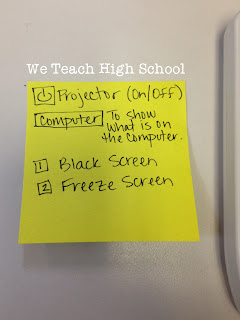 We Teach High School
Projector (On/Off)
Computer To show
what is on
the computer.
1 Black Screen
2 Freeze Screen